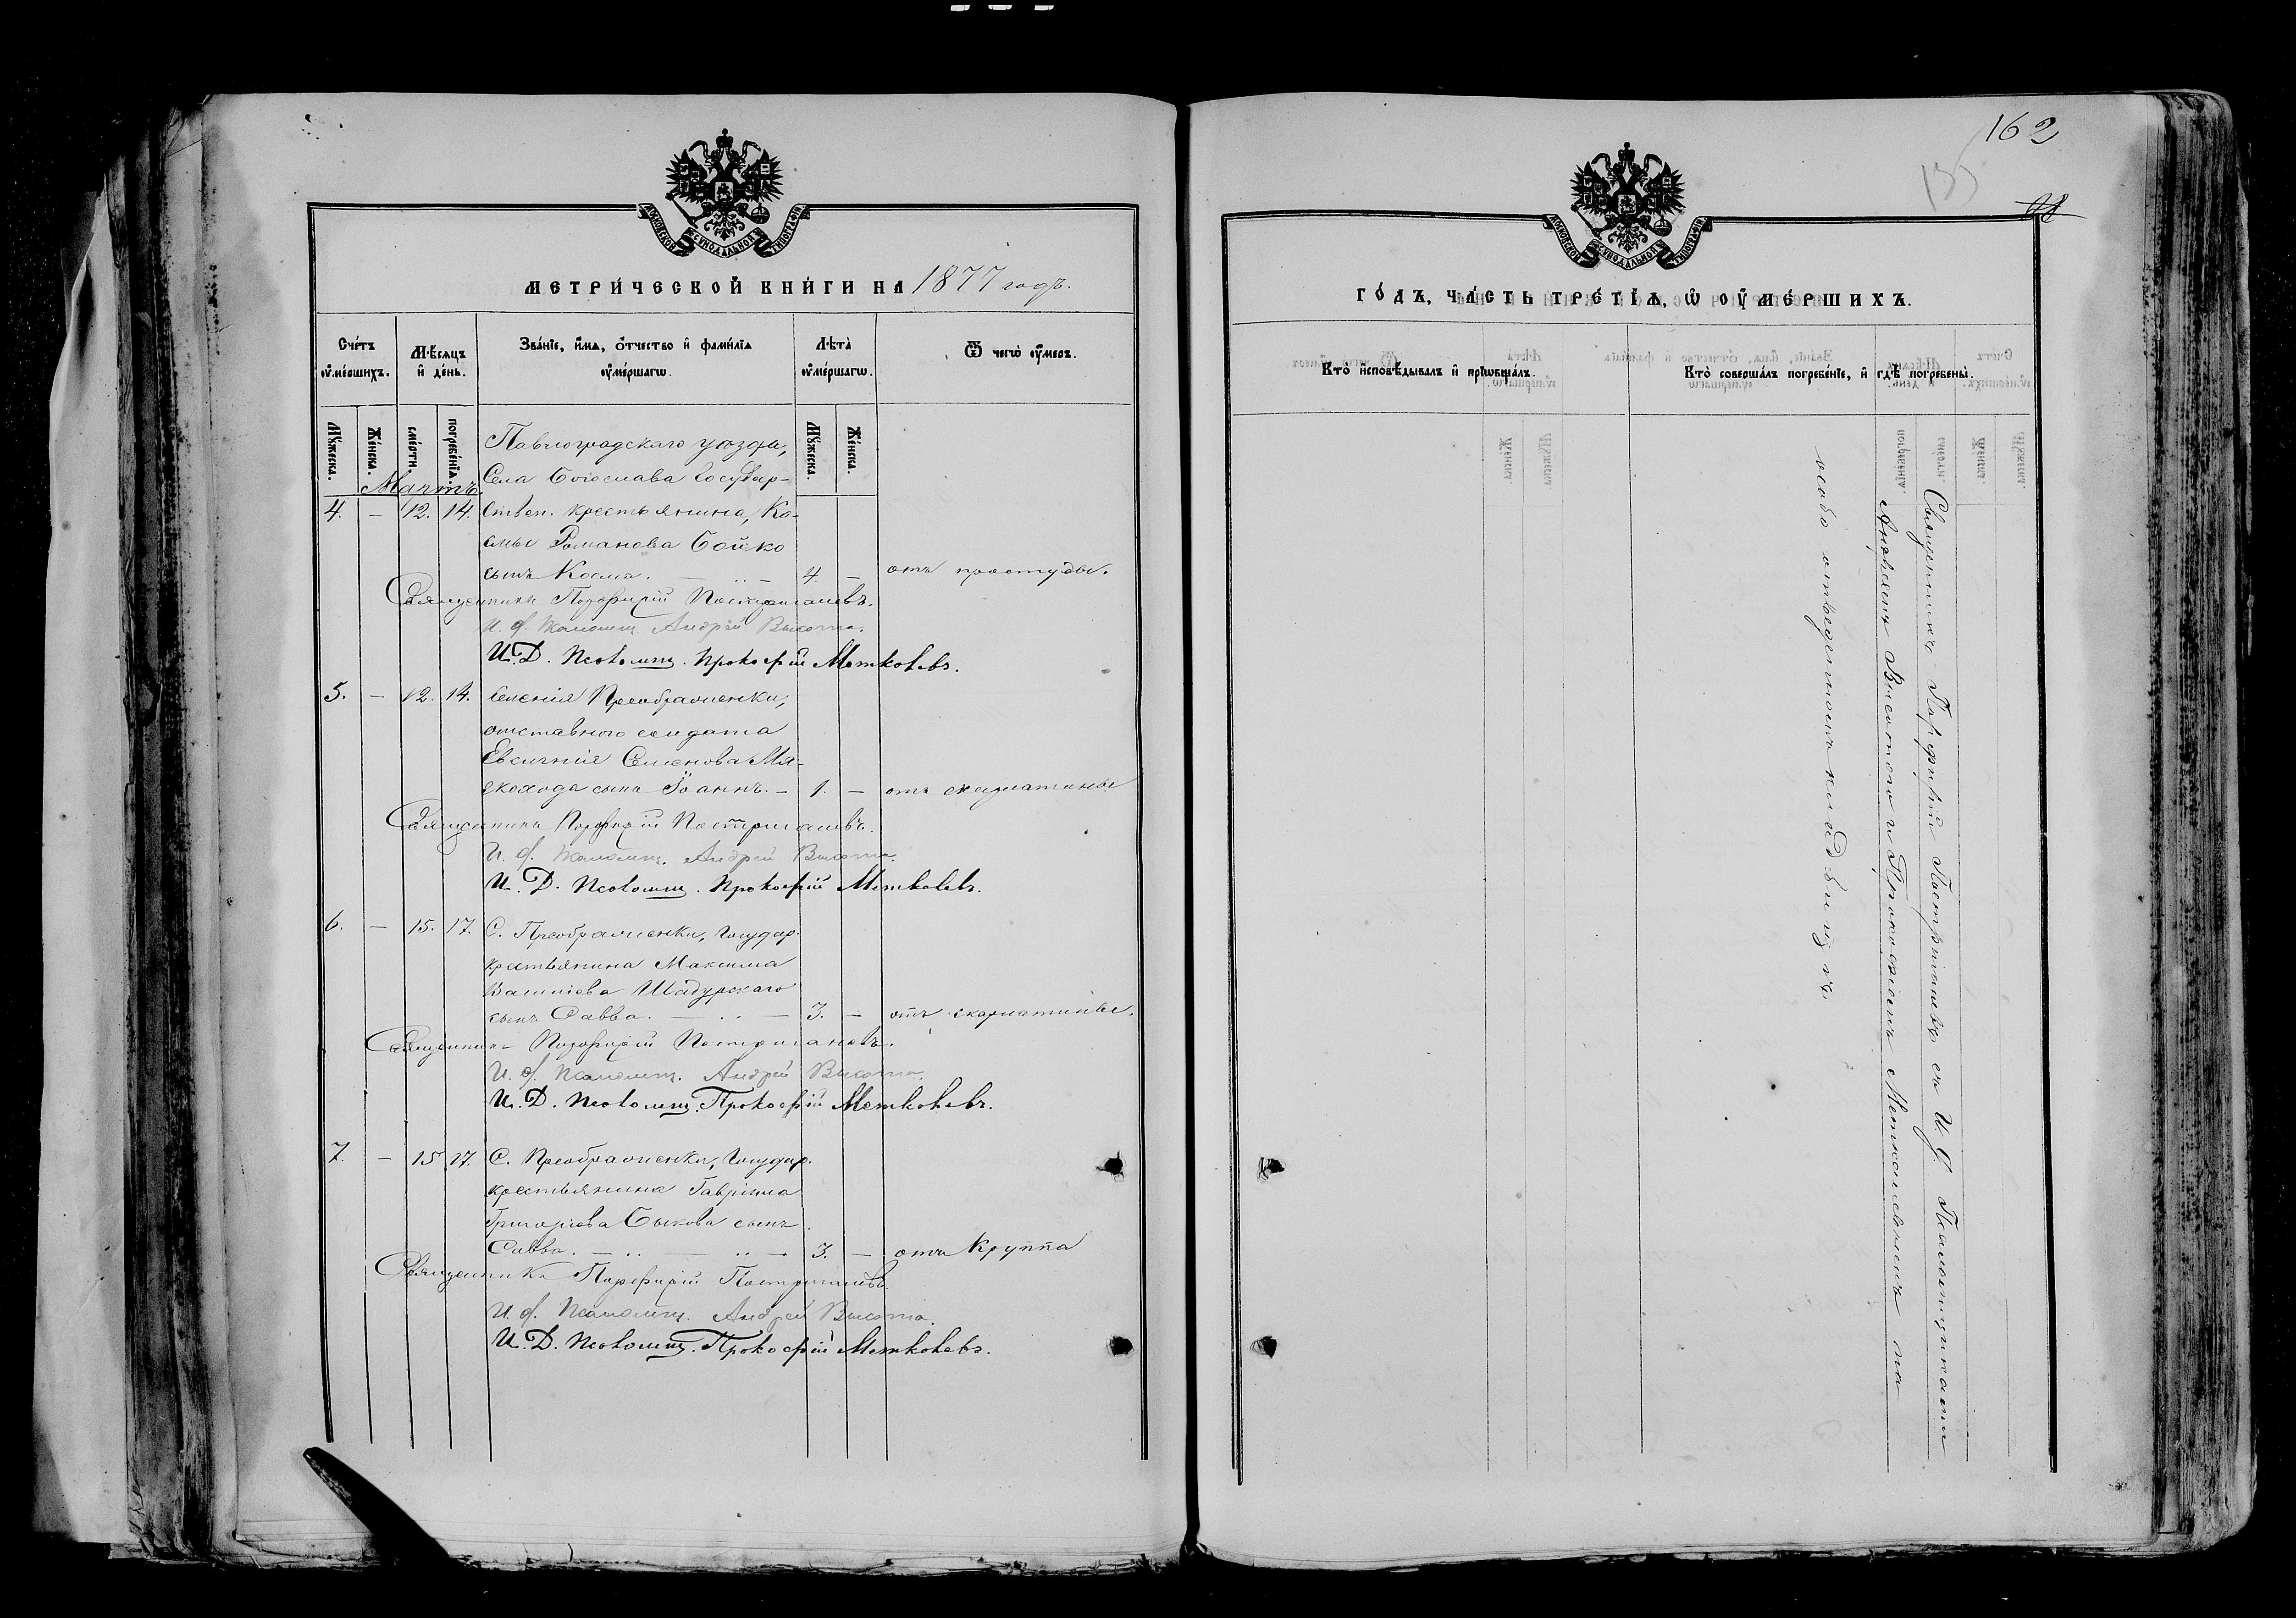 162
МОСКОВСКОЙ СУНОДАЛЬНОЙ ТИПОГРАФІИ
МЕТРИ́ЧЕСКОЙ КНИ́ГИ НА 1877 годъ.
Сче́тъ оу҆ме́ршихъ.
Мѣ́сяцъ и҆ де́нь.
Зва́нїе, и҆́мѧ, ѻ҆́тчество и҆ фами́лїѧ оу҆ме́ршагѡ.
Лѣта̀ оу҆ме́ршагѡ.
Ѿ чегѡ̀ оу҆́меръ.
Мꙋ́жеска.
Же́нска.
сме́рти.
погребе́нїѧ.
Мꙋ́жеска.
Же́нска.
Мартъ.
Павлоградскаго уѣзда,
Села Богослава Государ-
4. — 12. 14. ствен. крестьянина, Ко-
смы Романова Бойко
сынъ Косма. — 4. — отъ простуды.
Священникъ Порфирій Постригачевъ.
И. д. Псаломщ. Андрей Высота.
И. Д. Псаломщ. Прокофій Метковевъ.
5. — 12. 14. Селенія Преображенки,
отставного солдата
Евсигнія Семенова Мя-
скохода сынъ Іоаннъ. — 1. — отъ скарлатины
Священникъ Порфирій Постригачевъ.
И. д. Псаломщ. Андрей Высота.
И. Д. Псаломщ. Прокофій Метковевъ.
6. — 15. 17. С. Преображенки, Государ.
крестьянина Максима
Василіева Шадурскаго
сынъ Савва. — 3. — отъ скарлатины.
Священникъ Порфирій Постригачевъ.
И. д. Псаломщ. Андрей Высота.
И. Д. Псаломщ. Прокофій Метковевъ.
7. — 15 17. С. Преображенки, Государ.
крестьянина Гавріила
Григоріева Быкова сынъ
Савва. — 3. — отъ Круппа
Священникъ Порфирій Постригачевъ.
И. д. Псаломщ. Андрей Высота.
И. Д. Псаломщ. Прокофій Метковевъ.
МОСКОВСКОЙ СУНОДАЛЬНОЙ ТИПОГРАФІИ
ГО́ДЪ, ЧА́СТЬ ТРЕ́ТЇѦ, Ѡ҆ ОУ҆МЕ́РШИХЪ.
Кто̀ и҆сповѣ́дывалъ и҆ прїѡбща́лъ.
Кто̀ соверша́лъ погребе́нїе, и҆ гдѣ̀ погребены̀.
Священникъ Порфирій Постригачевъ съ И. д. Псаломщиками
Андреемъ Высотою и Прокофіемъ Метковевымъ на
особо отведенномъ кладбищѣ